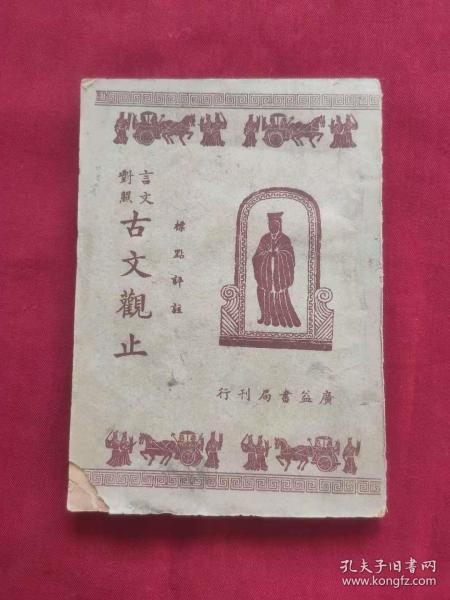 言文對照
古文觀止
標點評註
廣益書局刊行
孔夫子旧书网
www.kongfz.com